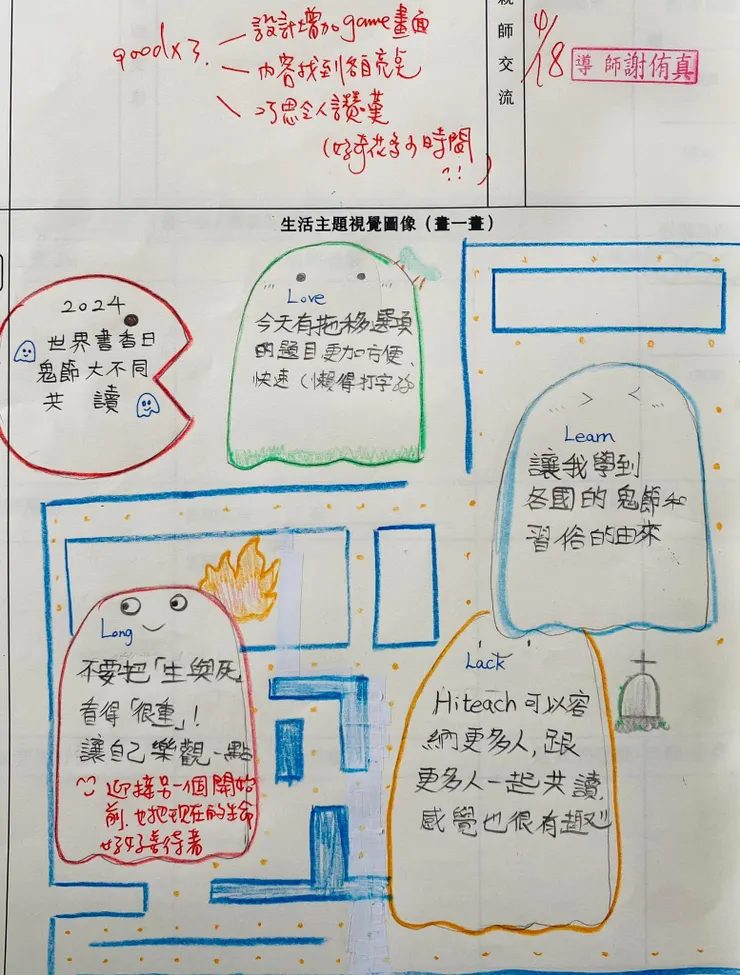 good x3.
設計增加game畫面
內容找到額亮点
巧思令人讚嘆
(好奇花多少時間
?!)
親師交流
4/18
導師謝侑真
生活主題視覺圖像（畫一畫）
2024
世界書香日
鬼節大不同
共讀
Love
今天有拖移選項
的題目更加方便、
快速（懶得打字
Learn
讓我學到
各國的鬼節和
習俗的由來
Long
不要把「生與死」
看得「很重」！
讓自己樂觀一點
迎接另一個開始
前，也把現在的生命
好好善待著
Lack
Hiteach可以容
納更多人，跟
更多人一起共讀，
感覺也很有趣